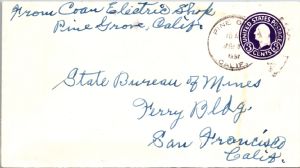 From Coan Electric Shop
Pine Grove, Calif.
PINE
CALIF.
UNITED STATES
CENTS
State Bureau of Mines
Ferry Bldg.
San Francisco
Calif.